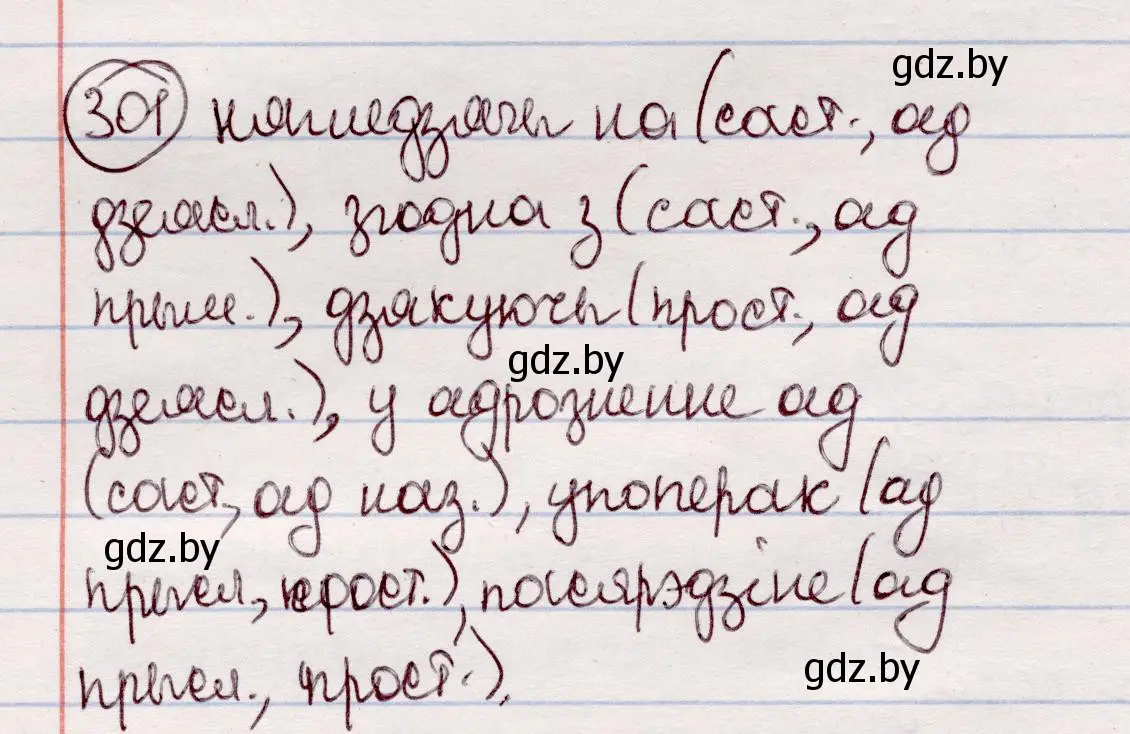 gdz.by
301 нягледзячы на (саст., ад
дзеясл.), згодна з (саст., ад
прым.), дзякуючы (прост., ад
gdz.by
дзеясл.), у адрозненне ад
(саст, ад наз.), упоперак (ад
gdz.by
прысл., прост.), пасярэдзіне (ад
gdz.by
прысл., прост.).